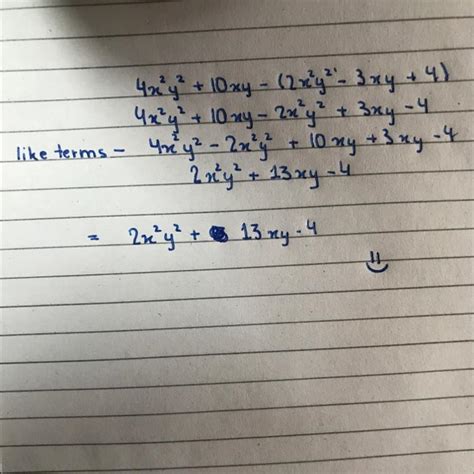 4x²y² + 10xy - (2x²y² - 3xy + 4)
4x²y² + 10xy - 2x²y² + 3xy - 4
like terms - 4x²y² - 2x²y² + 10xy + 3xy - 4
2x²y² + 13xy - 4
= 2x²y² + 13xy - 4